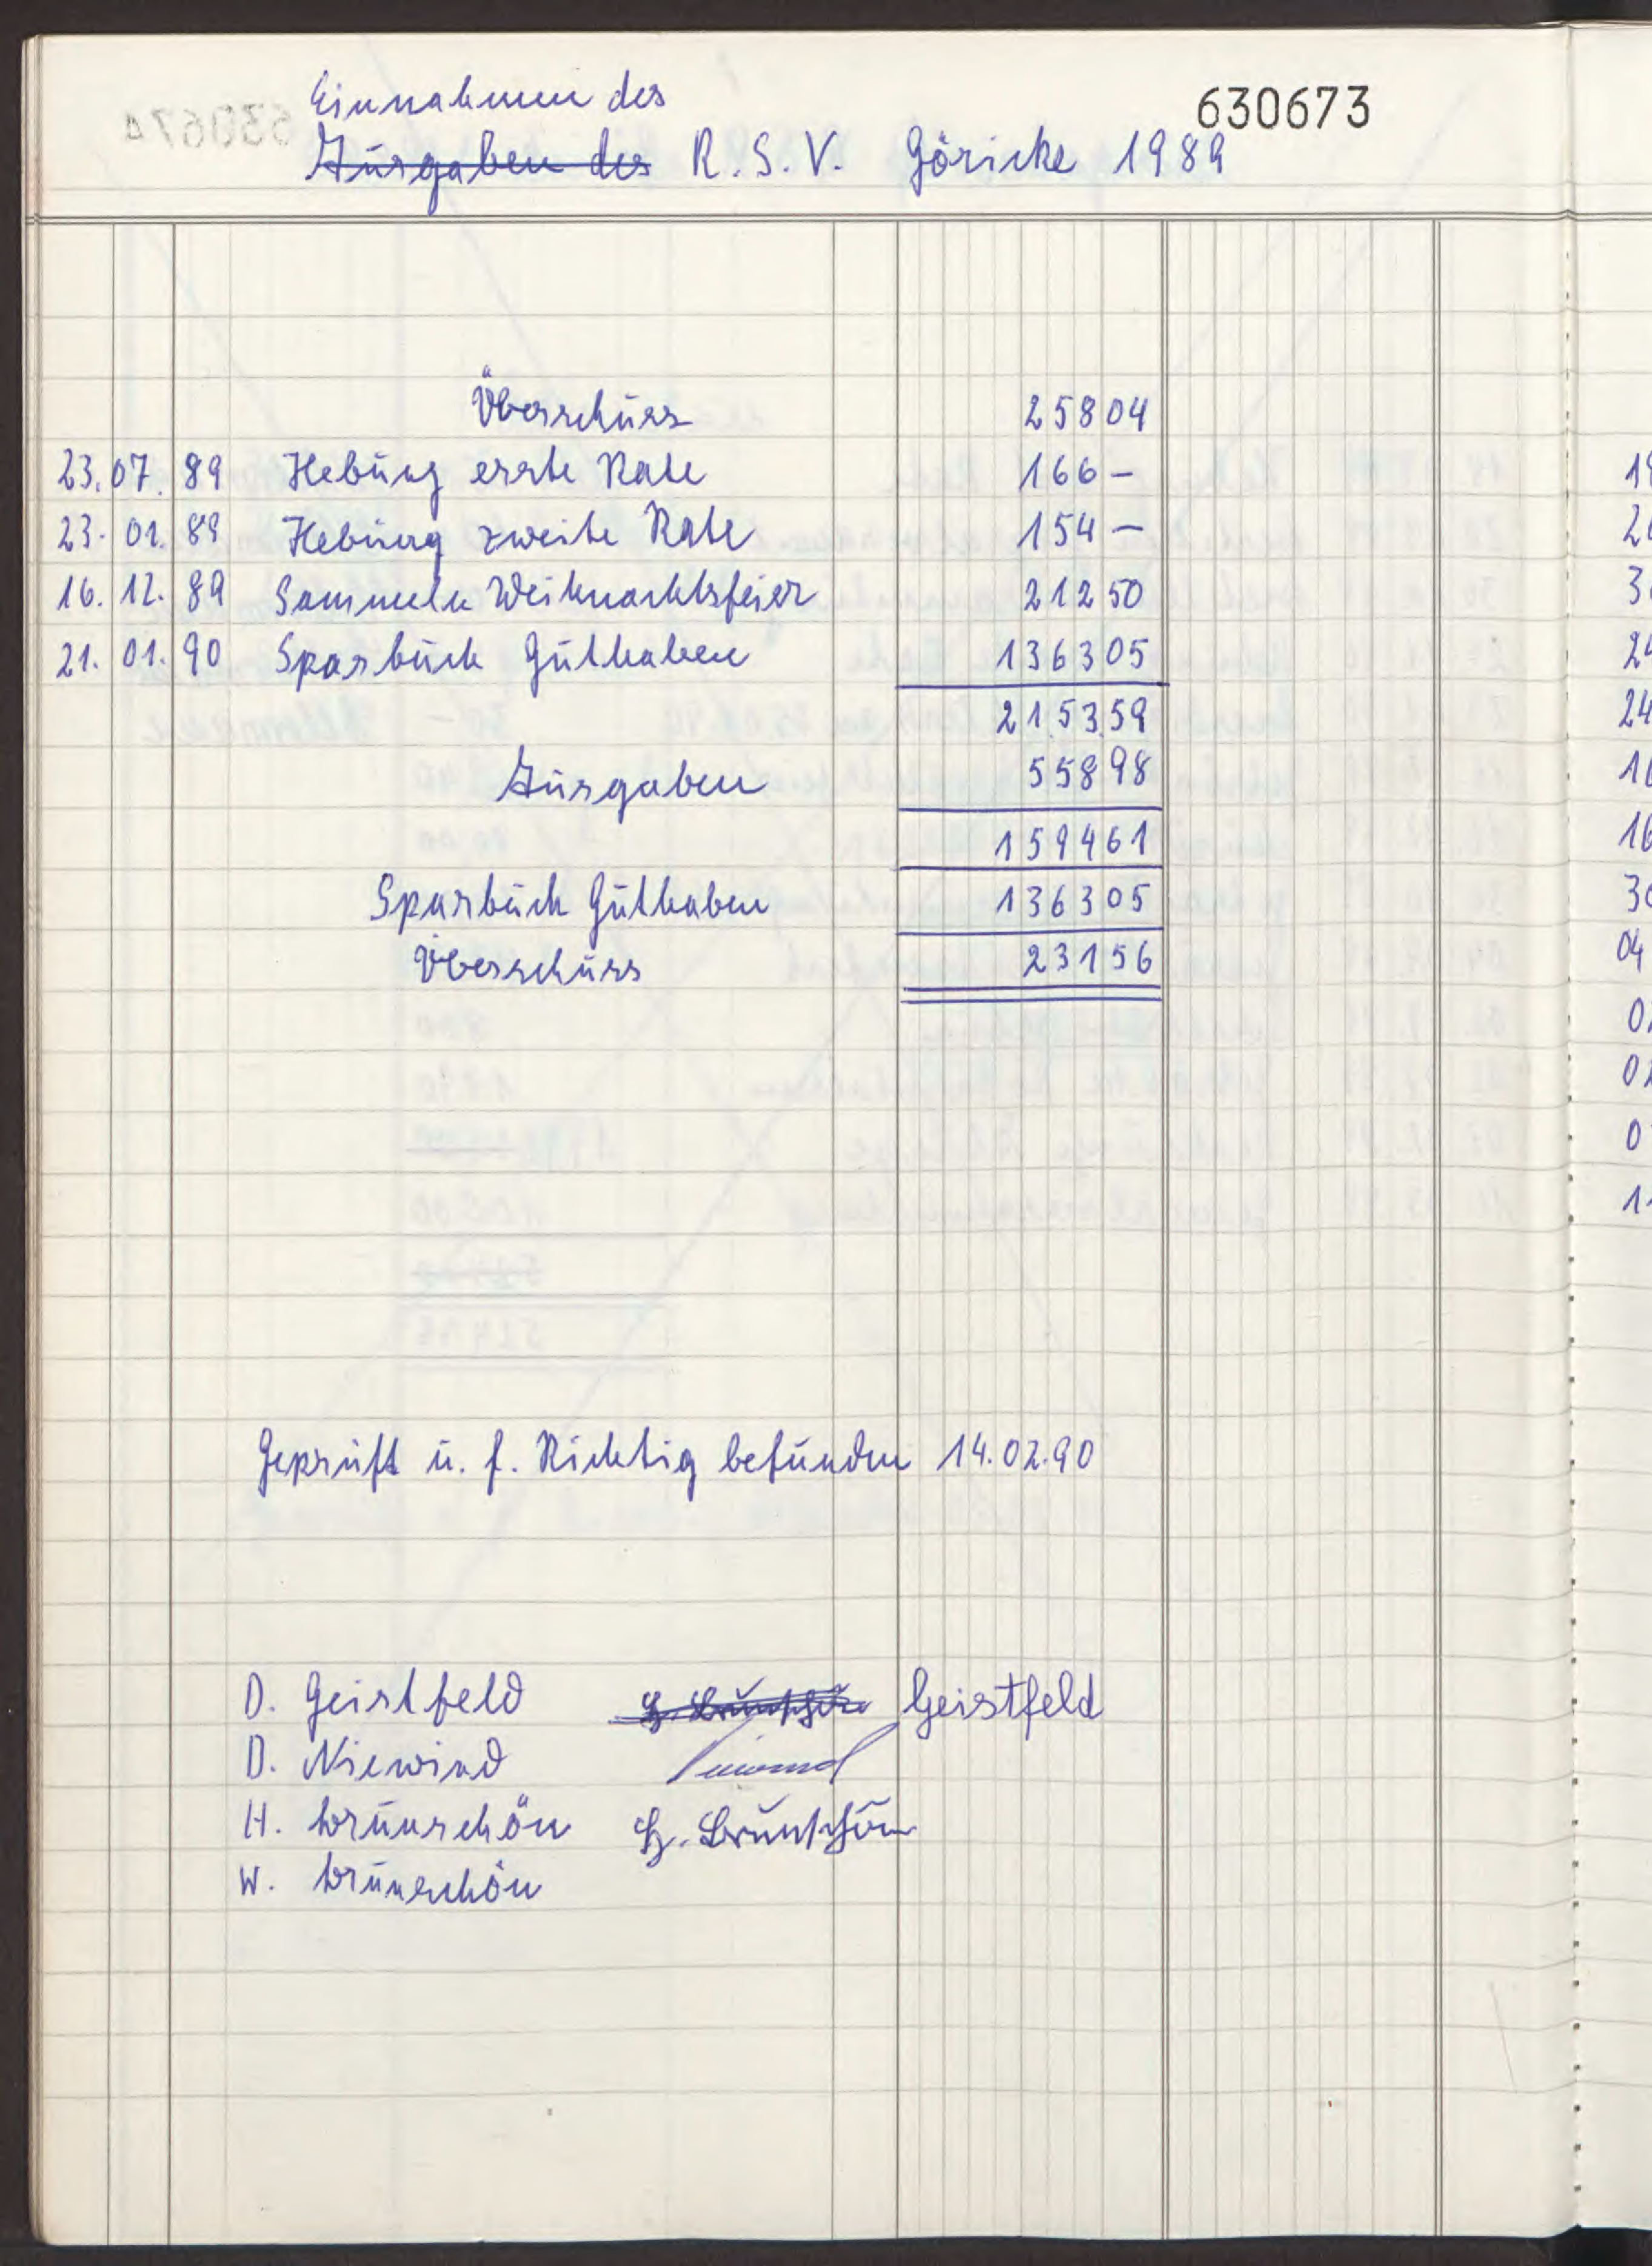 630673
Einnahmen des
Ausgaben des R. S. V. Göricke 1989
Überschuss 258 04
23. 07. 89 Hebung erste Rate 166 –
23. 01. 89 Hebung zweite Rate 154 –
16. 12. 89 Sammeln Weihnachtsfeier 212 50
21. 01. 90 Sparbuch Guthaben 1363 05
2153 59
Ausgaben 558 98
1594 61
Sparbuch Guthaben 1363 05
Überschuss 231 56
Geprüft u. f. Richtig befunden 14.02.90
D. Geistfeld Geistfeld
D. Niewind Niewind
H. Brunschön H. Brunschön
W. Brunschön